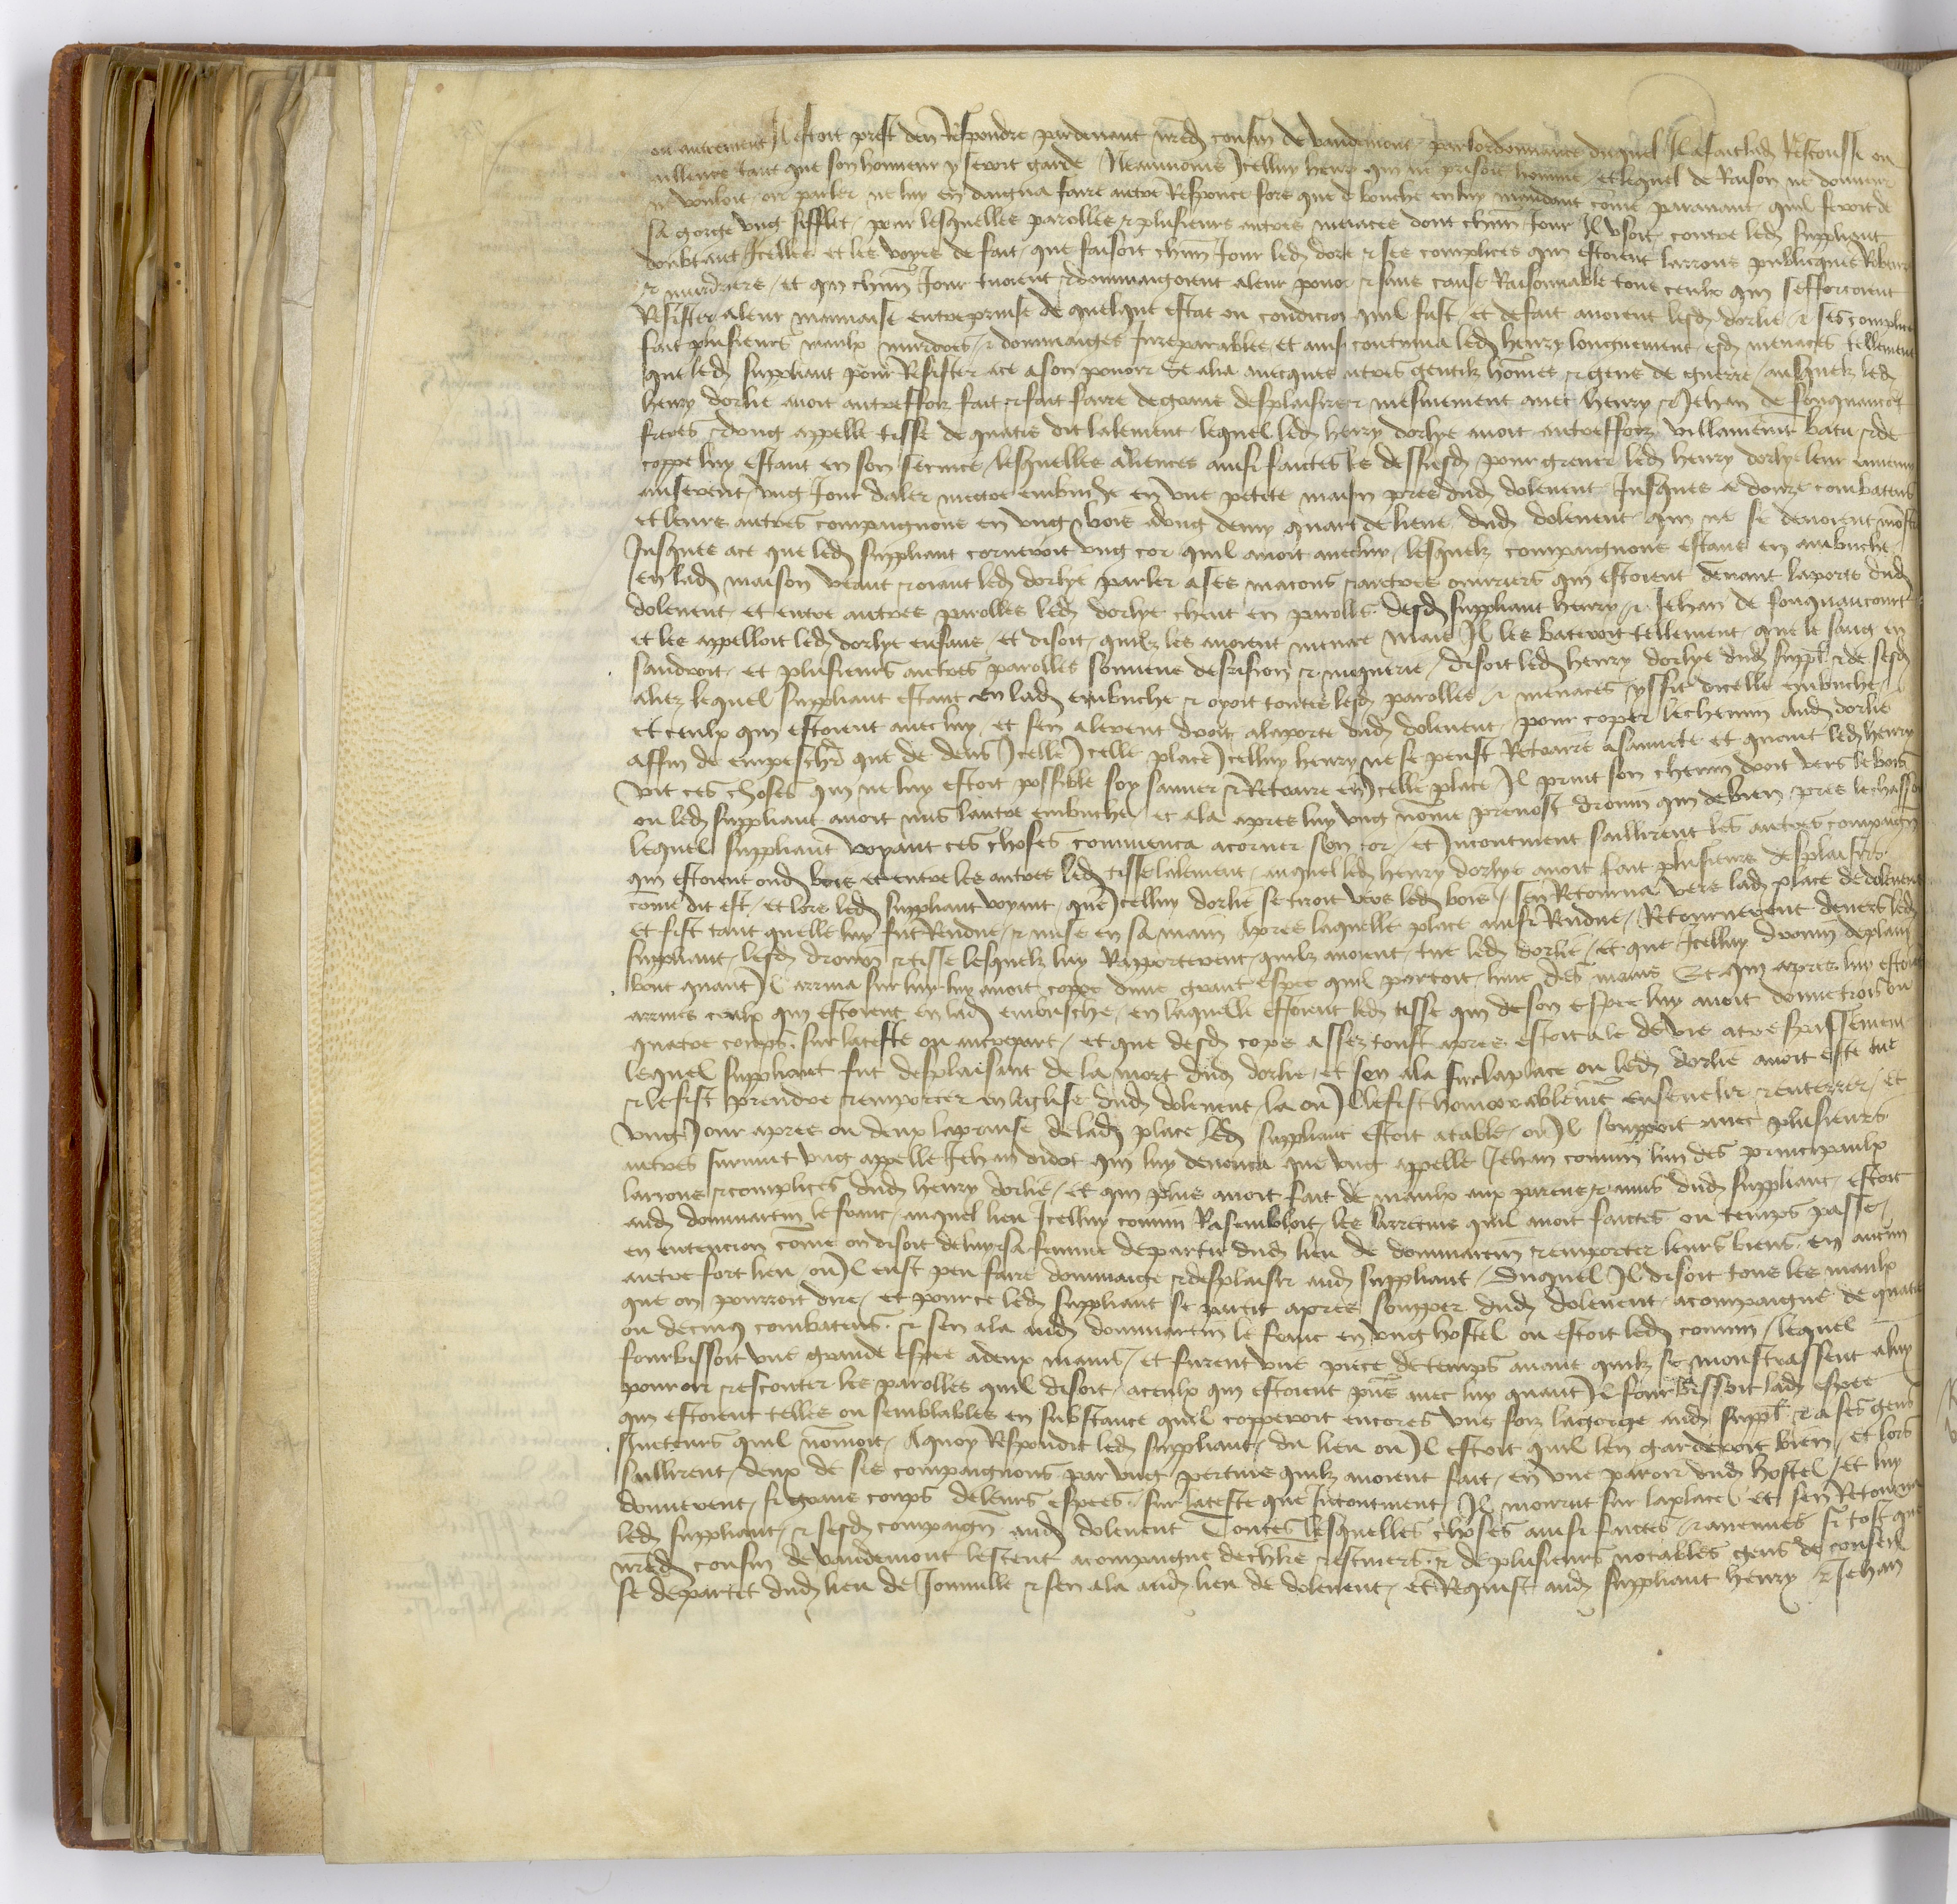 ou autrement Il estoit prest den Respondre pardevant nred cousin de vaudemont par lordonnance duquel Il a fait lad Rescousse ou
ailleurs tant que son honneur y seroit garde Neantmoins Icelluy henry qui ne prisoit homme et lequel de Raison ne donneur
ne vouloit oir parler ne luy en daigna faire autre Responce fors que de bouche en luy mandant come paravant quil feroit de
sa gorge ung sifflet pour lesquelles parolles & plusieurs autres menaces dont chun Jour Il usoit contre led suppliant
doubtant Icelles et les voyes de fait que faisoit chun Jour led dorlie & ses complices qui estoient larrons publicques Robeurs
& murdriers et qui chun Jour tuoient & dommaigoient a leur povoir & sans cause Raisonnable tous ceulx qui sefforcoient
Resister a leur mauvaise entreprinse de quelque estat ou condicion quil fust et de fait avoient lesd dorlie & ses complices
fait plusieurs maulx murdres & dommaiges Inreparables et ainsi continua led henry longuement esd menaces tellement
que led suppliant pour Resister a ce a son povoir se alia avecques autres gentilz homes & gens de guerre ausquelz led
henry dorlie avoit autreffoiz fait & fait faire de grans desplaisirs & mesmement avec henry & Jehan de fouquaucort
freres & dung appelle tisse de quatre dit lalement lequel led henry dorlye avoit autreffoiz villainemt batu & de
coppe luy estant en son service lesquelles aliences ainsi faictes les dessusd pour grever led henry dorlye leur ennemy
aviserent ung Jour daler mectre embuche en une petite maison pres dud dolevent Jusques a douze combatans
et leurs autres compaignons en ung bois a dung demy quart de lieue dud dolevent qui ne se devoient monstr
Jusques a ce que led suppliant corneroit ung cor quil avoit avec luy lesquelz compaignons estans en embuche
en lad maison veant & oiant led dorlye parler a ses macons & autres ouvriers qui estoient devant la porte dud
dolevent et entre autres parolles led dorlye cheut en parolles desd suppliant henry & Jehan de fouquaucourt
et les appelloit led dorlye enfans et disoit quilz les avoient menace mais Il les batroit tellement que le sang en
sauldroit et plusieurs autres parolles sonnens desrision & moquerie disoit led henry dorlye dud suppl & de sesd
aliez lequel suppliant estant en lad embuche & oyoit toutes lesd parolles & menaces yssit dicelle embuche
et ceulx qui estoient avec luy et sen alerent droit a la porte dud dolevent pour coper le chemin aud dorlie
affin de empescher que de dens Icelle Icelle place Icelluy henry ne se peust Retraire a saulvete et quant led henry
vit ces choses qui ne luy estoit possible soy sauver & Retraire en Icelle place Il print son chemin droit vers le bois
ou led suppliant avoit mis lautre embuche et ala apres luy ung nome prevost drouin qui de bien pres le chassoit
lequel suppliant voyant ces choses commenca a corner son cor et Incontinent saillirent les autres compaign
qui estoient oud bois et entre les autres led tisse lalement auquel led henry dorlye avoit fait plusieurs desplaisirs
come dit est et lors led suppliant voyant que Icelluy dorlie se tiroit vers led bois sen Retourna vers lad place de dolevent
et fist tant quelle luy fut Rendue & mise en sa main Apres laquelle place ainsi Rendue Retournerent devers led
suppliant lesd drouin & tisse lesquelz luy Rapporterent quilz avoient tue led dorlie et que Icelluy drouin de plain
bout quant Il arriva sur luy luy avoit coppe dune grant espee quil portoit lune des mains Et qui apres luy estoient
arrives ceulx qui estoient en lad embusche en laquelle estoient led tisse qui de son espee luy avoit donne trois ou
quatre coups sur la teste ou autrepart et que desd cops assez tost apres estoit ale de vie a trespassement
lequel suppliant fut desplaisant de la mort dud dorlie et sen ala sur la place ou led dorlie avoit este tue
& le fist prendre & emporter en leglise dud dolevent la ou Il le fist honnorablemt ensevelir & enterrer et
ung Jour apres ou deux la prinse de lad place led suppliant estoit a table ou Il souppoit avec plusieurs
autres survint ung appelle Jehan didot qui luy denonca que ung appelle Jehan comin lun des principaulx
larrons & complices dud henry dorlie et qui plus avoit fait de maulx aux parens & amis dud suppliant estoit
aud dommartin le franc auquel lieu Icelluy comin Rasembloit les larrecins quil avoit faictes ou temps passe
en entencion come on disoit de luy & sa femme departir dud lieu de dommartin & emporter leurs biens en aucun
autre fort lieu ou Il eust peu faire dommaige & desplaisir aud suppliant duquel Il disoit tous les maulx
que on pourroit dire et pource led suppliant se partit apres soupper dud dolevent acompaigne de quatre
ou de cinq combatans & sen ala aud dommartin le franc en ung hostel ou estoit led comin lequel
fourbissoit une grande espee a deux mains et furent une piece de temps avant quilz se monstrassent a luy
pour oir & escouter les parolles quil disoit a ceulx qui estoient pns avec luy quant Il fourbissoit lad espee
qui estoient telles ou semblables en substance quil copperoit encores une foiz la gorge aud suppl & a ses gens
sucteurs quil nomoit A quoy Respondit led suppliant du lieu ou Il estoit quil len garderoit bien et lors
saillirent deux de ses compaignons par ung pertuis quilz avoient fait en une paroir dud hostel et luy
donnerent si grans coups de leurs espees sur la teste que Incontinent Il mourut sur la place et sen Retourna
led suppliant & sesd compaign aud dolevent Toutes lesquelles choses ainsi faictes & avenues si tost que
nred cousin de vaudemont lestent acompaigne de chlrs & escuiers & de plusieurs notables gens de conseil
se departet dud lieu de Joinville & sen ala aud lieu de dolevent et Requist aud suppliant henry & Jehan